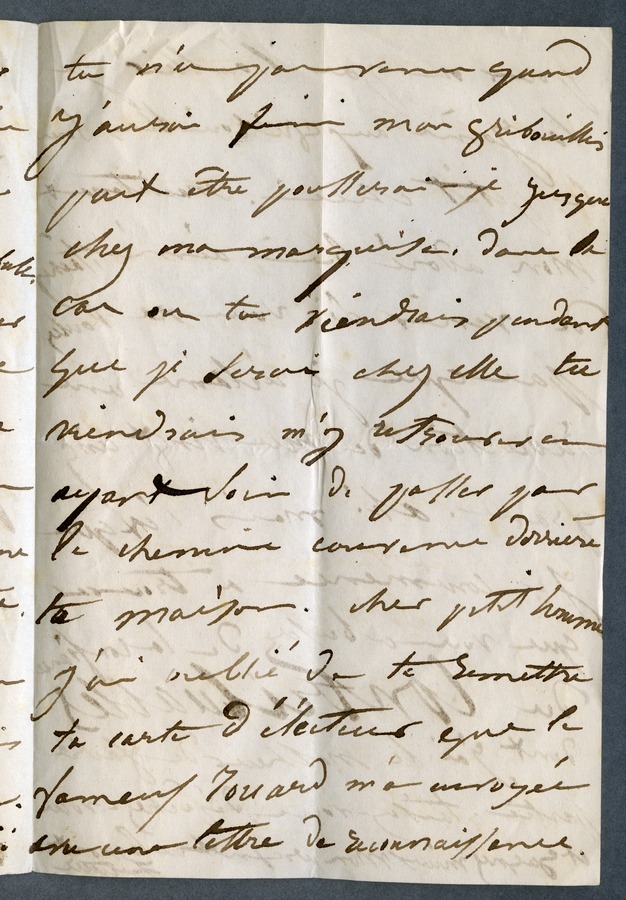 tu n'es pas venu quand
j'aurai fini mon gribouillis
peut être pousserai-je jusque
chez ma marquise. Dans le
cas où tu viendrais pendant
que je serai chez elle tu
viendrais m'y retrouver en
ayant soin de passer par
le chemin couvert derrière
ta maison. Cher petit homme
j'ai oublié de te remettre
ta carte d'électeur que le
fameux Touard m'a envoyée
avec une lettre de reconnaissance.